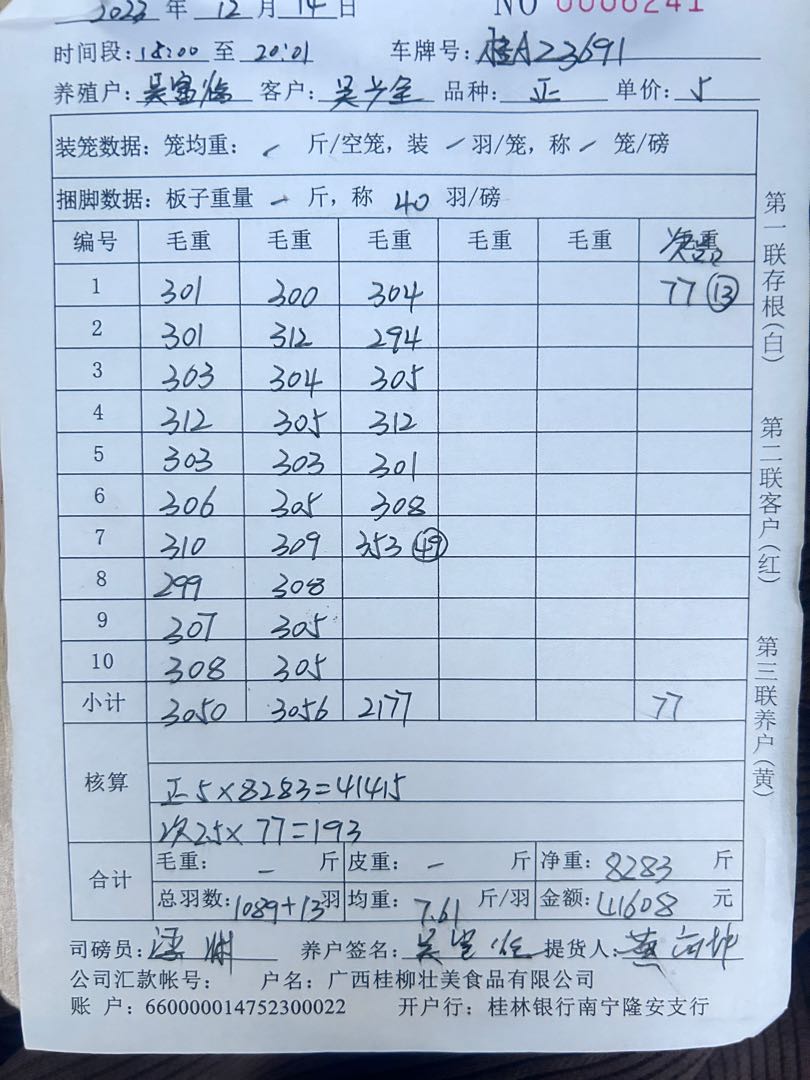 2023 年 12 月 14 日 NO 0006241
时间段:18:00 至 20:01 车牌号:桂A23691
养殖户:吴富临 客户:吴少全 品种:正 单价:5
装笼数据:笼均重: / 斤/空笼,装 / 羽/笼,称 / 笼/磅
捆脚数据:板子重量 - 斤,称 40 羽/磅
编号 毛重 毛重 毛重 毛重 毛重 次品
1 301 300 304 77 ⑬
2 301 312 294
3 303 304 305
4 312 305 312
5 303 303 301
6 306 305 308
7 310 309 353 ㊾
8 299 308
9 307 305
10 308 305
小计 3050 3056 2177 77
核算
正5×8283=41415
次2.5×77=193
合计
毛重: - 斤 皮重: - 斤 净重:8283 斤
总羽数:1089+13羽 均重:7.61 斤/羽 金额:41608 元
司磅员: 养户签名:吴富临 提货人:
公司汇款帐号: 户名:广西桂柳壮美食品有限公司
账 户:660000014752300022 开户行:桂林银行南宁隆安支行
第一联存根(白)
第二联客户(红)
第三联养户(黄)